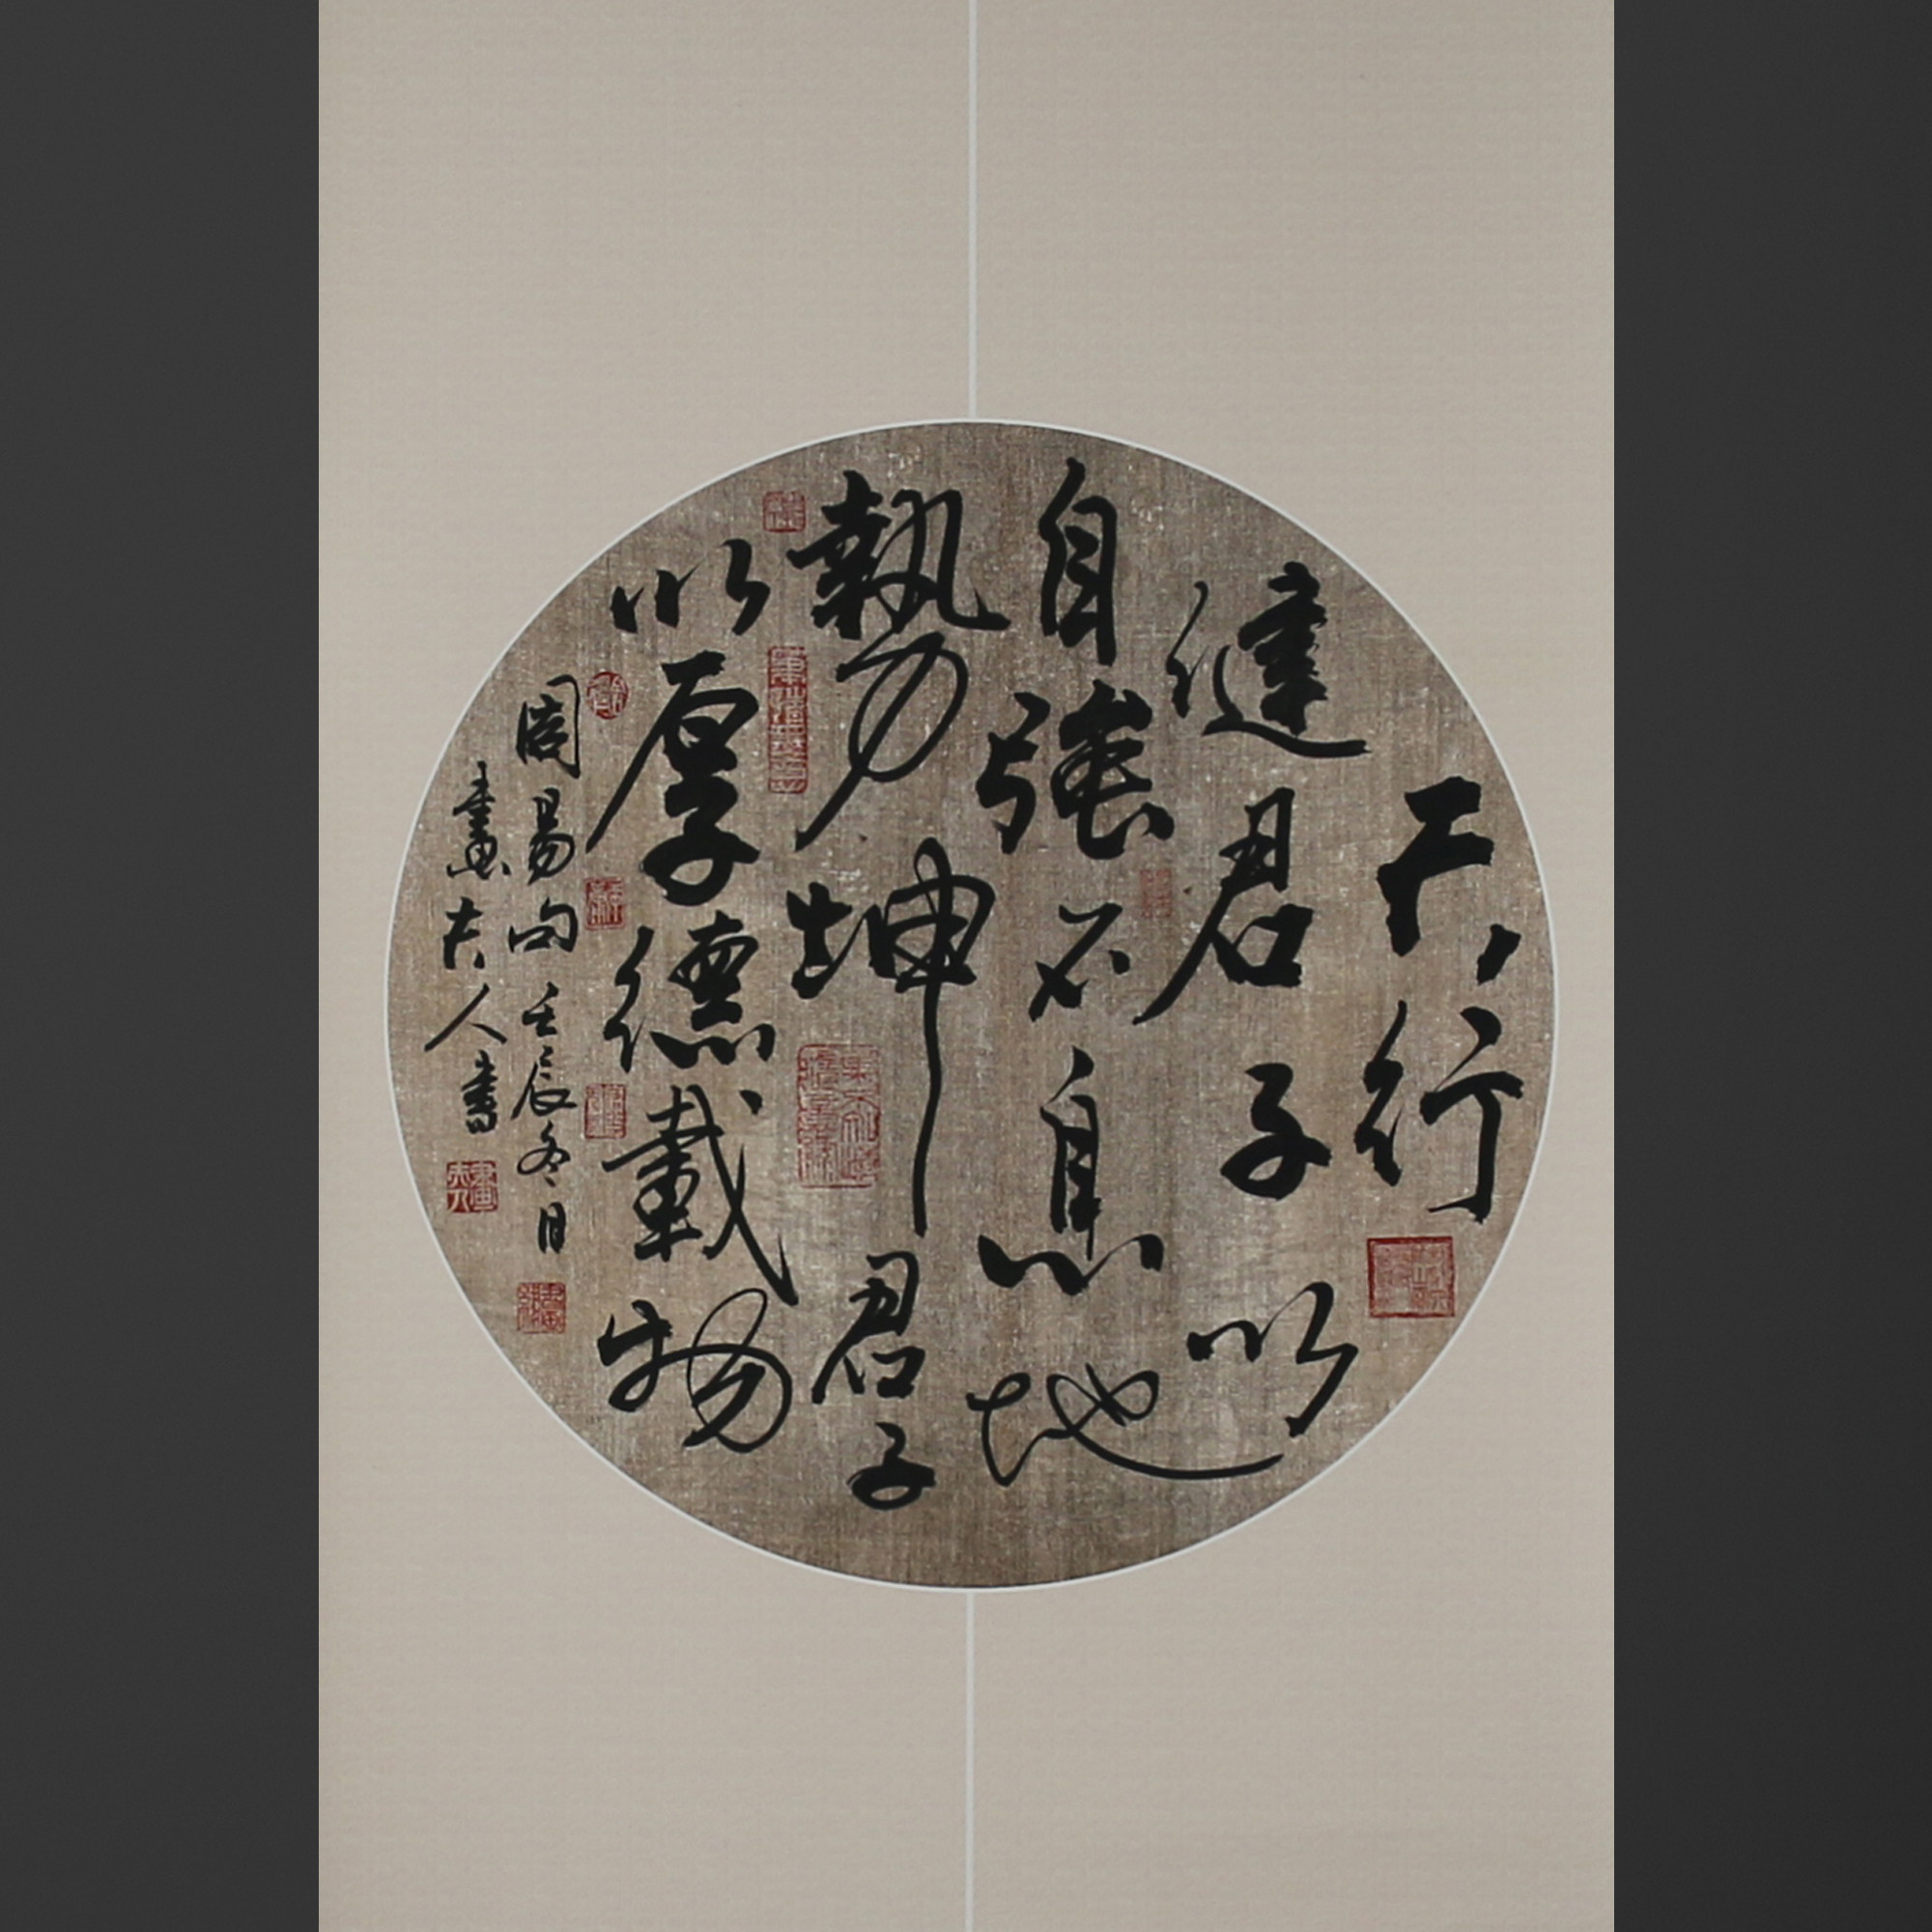 天行
健君子以
自強不息地
勢坤君子
以厚德載物
周易句壬辰冬月
畫天人書